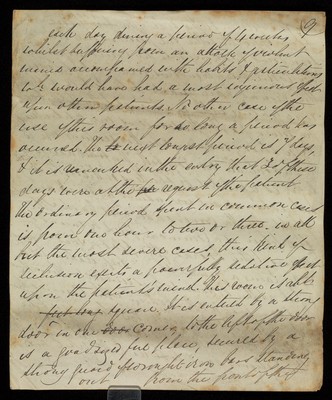 9
each day during a period of 4 weeks
whilst suffering from an attack of violent
mania accompanied with habits &
wh would have had a most injurious effect
upon other patients. No other case of the
use of this room for so long a period has
occurred. The next longest period is 7 days,
& it is remarked in the entry that 3 of these
days were at the request of the patient
The ordinary period spent in common cases
is from one hour to two or three. in all
but the most severe cases, this kind of
seclusion exerts a powerfully sedative effect
upon the patient's mind. The room is able
square. It is entered by a strong
door in one corner, to the left of the door
is a good sized fire place, secured by a
strong guard of wrought iron bars standing
out from the front of the